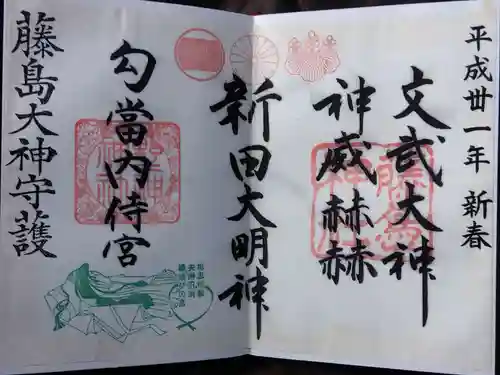 平成卅一年 新春
文武大神
神威赫赫
新田大明神
勾當内侍宮
藤島大神守護
藤島神社